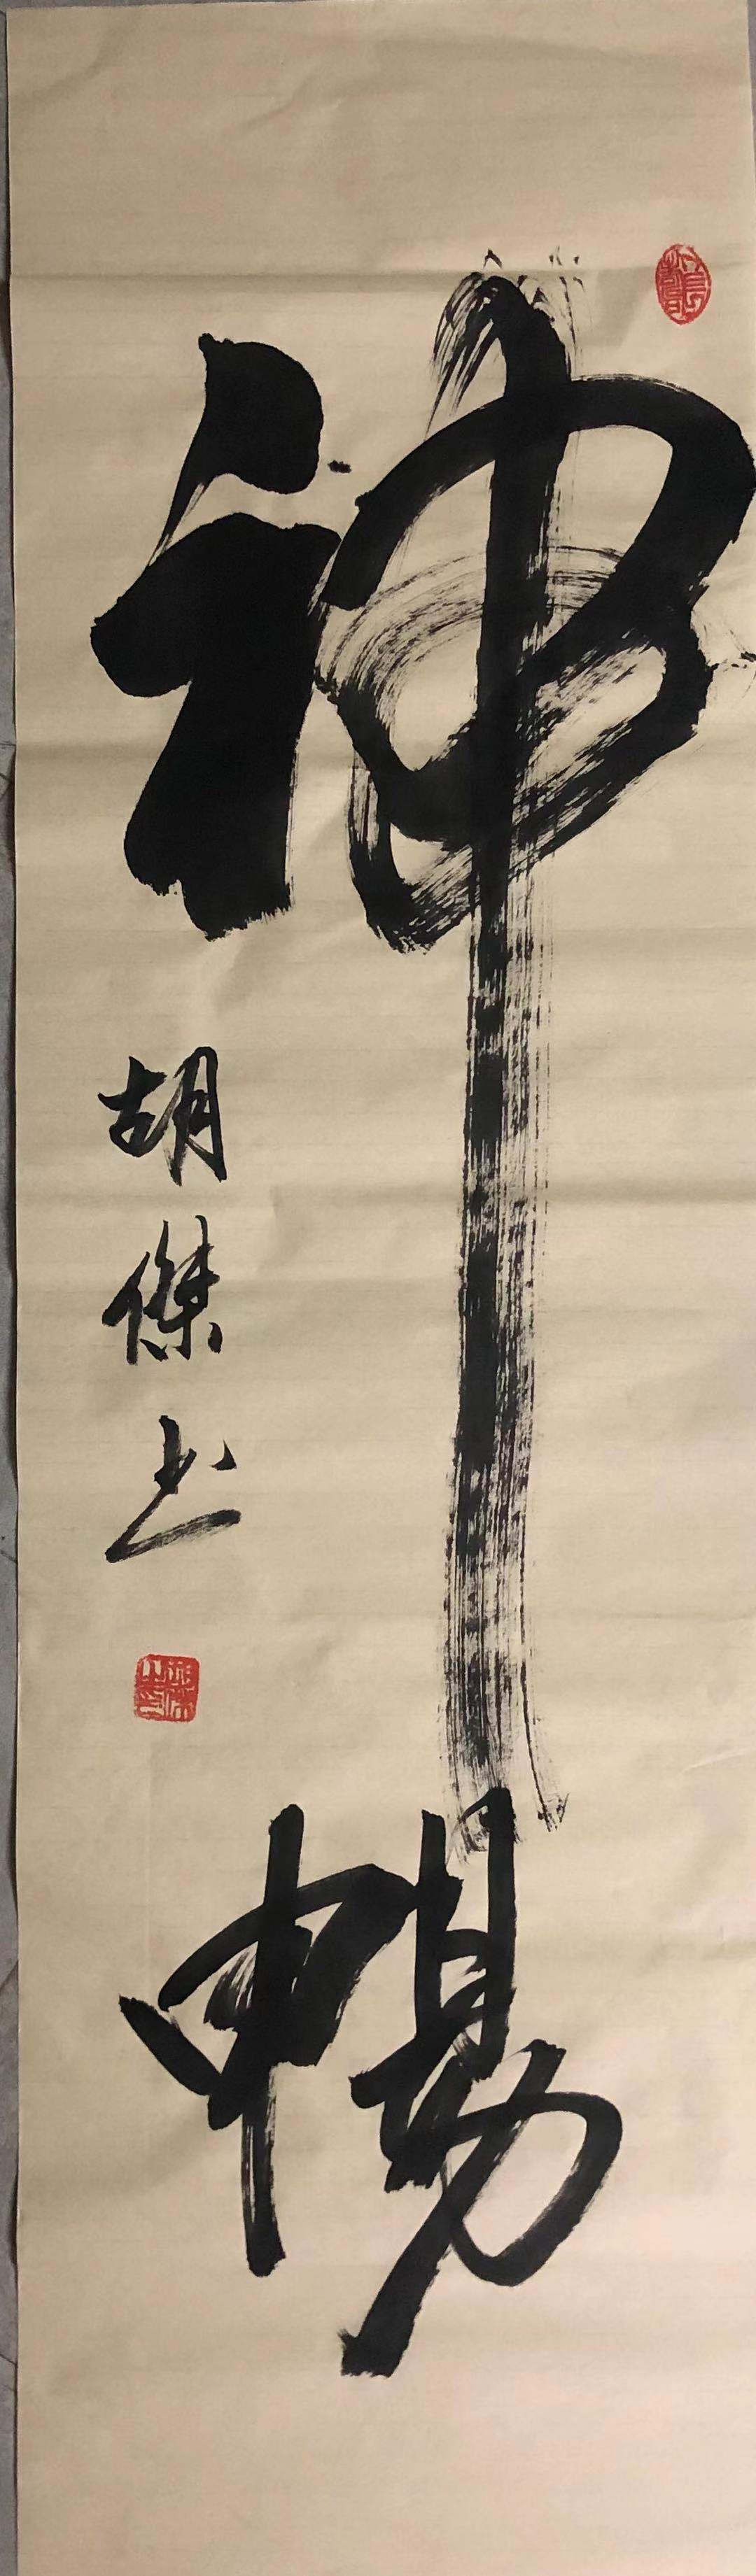 神暢
胡傑书